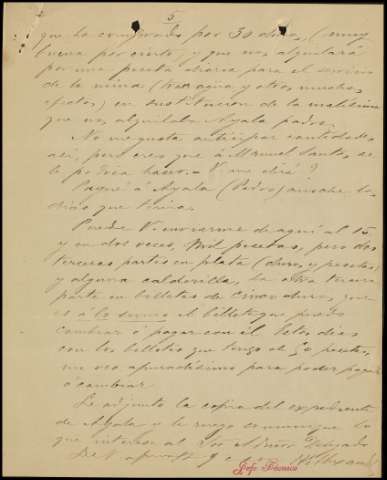 5
que ha comprado por 30 duros, (muy
buena por cierto) y que nos alquilará
por una peseta diaria para el servicio
de la mina (traer agua y otros muchos
efectos) en sustitución de la
que nos alquilaba Ayala padre.
No me gusta anticipar cantidades
así, pero creo que a Manuel Santos, se
le podría hacer. V. me dirá?
Pagué á Ayala (Pedro) anoche lo
que tenía.
Puede V. enviarme de aquí al 15
y en dos veces, mil pesetas, pero dos
terceras partes en plata (duros y pesetas)
y alguna calderilla, la otra tercera
parte en billetes de cinco duros, que
es á lo sumo el billete que puedo
cambiar ó pagar con él. Estos días
con los billetes que tengo de 50 pesetas,
me veo apuradísimo para poder pagar
ó cambiar.
Le adjunto la copia del expediente
de Ayala y le ruego comunique lo
que interese al Sor
De V. afmo
Jefe Técnico